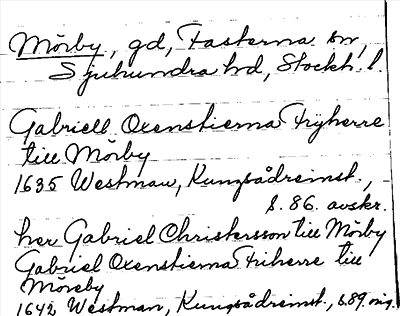 Mörby, gd, Fasterna sn,
Sjuhundra hd, Stockh. l.
Gabriell Oxenstierna Frÿherre
till Mörby
1635 Westman, Kungsådreinst.,
s. 86. avskr.
her Gabriel Christersson till Mörby
Gabriel Oxenstierna Friherre till
Möreby
1642 Westman, Kungsådreinst., s.89. orig.